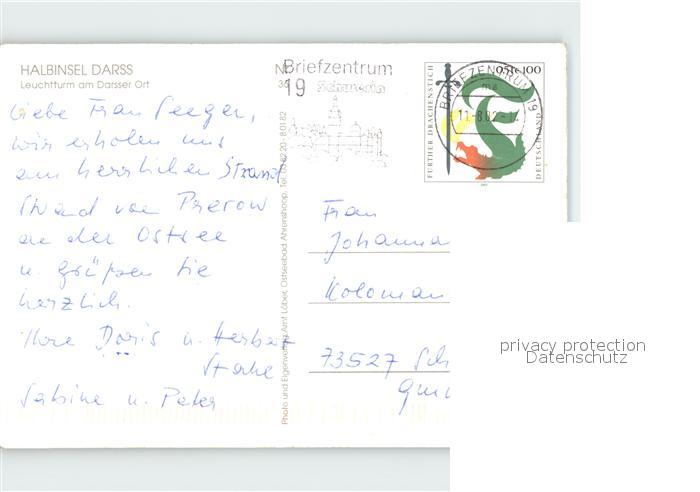 HALBINSEL DARSS
Leuchtturm am Darsser Ort
Liebe Frau Seeger,
wir erholen uns
am herrlichen Strand
Strand von Prerow
an der Ostsee
u. grüßen Sie
herzlich.
Ihre Doris u. Herbert
Sabine u. Peter
Photo und Eigenverlag Amt Löber, Ostseebad Ahrenshoop, Tel. 03 82 20 - 8 01 82
Briefzentrum
19 Schwerin
FURTHER DRACHENSTICH
0,51€ 100
DEUTSCHLAND
2001
BRIEFZENTRUM 19
ma
-8.02-
Frau
Johanna
Koloman
73527 Sch
Gmü
privacy protection
Datenschutz